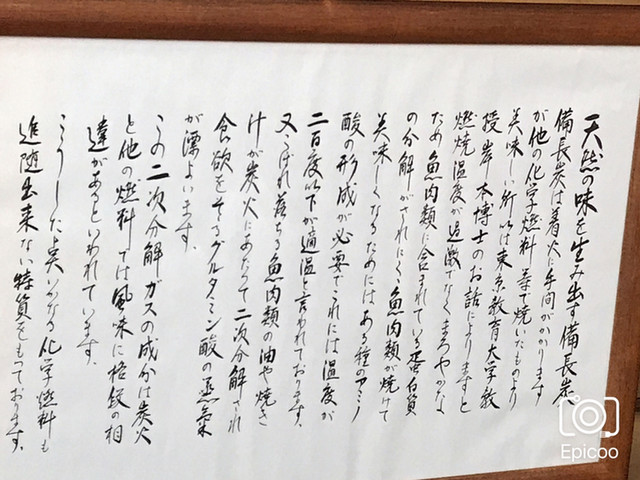 天然の味を生み出す備長炭
備長炭は着火に手間がかかります
が他の化学燃料等で焼いたものより
美味しい所以は東京教育大学教
授岸本博士のお話によりますと
燃焼温度が過激でなくまろやかな
ため魚肉類に含まれている蛋白質
の分解がされにくく魚肉類が焼けて
美味しくなるためにはある種のアミノ
酸の形成が必要でこれには温度が
二百度以下が適温と言われております、
又こぼれ落ちる魚肉類の油や焼き
汁が炭火にあたって二次分解され
食欲をそそるグルタミン酸の蒸気
が漂よいます、
この二次分解ガスの成分は炭火
と他の燃料では風味に格段の相
違があるといわれています、
こうした点いかなる化学燃料も
追随出来ない特質をもっております、
Epicoo